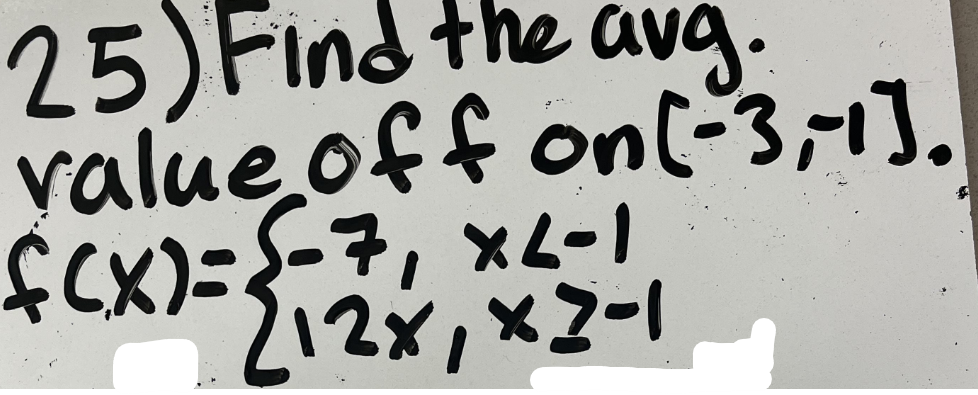 25) Find the avg.
value of f on [-3,-1].
f(x)={-7, x<-1
{12x, x≥-1